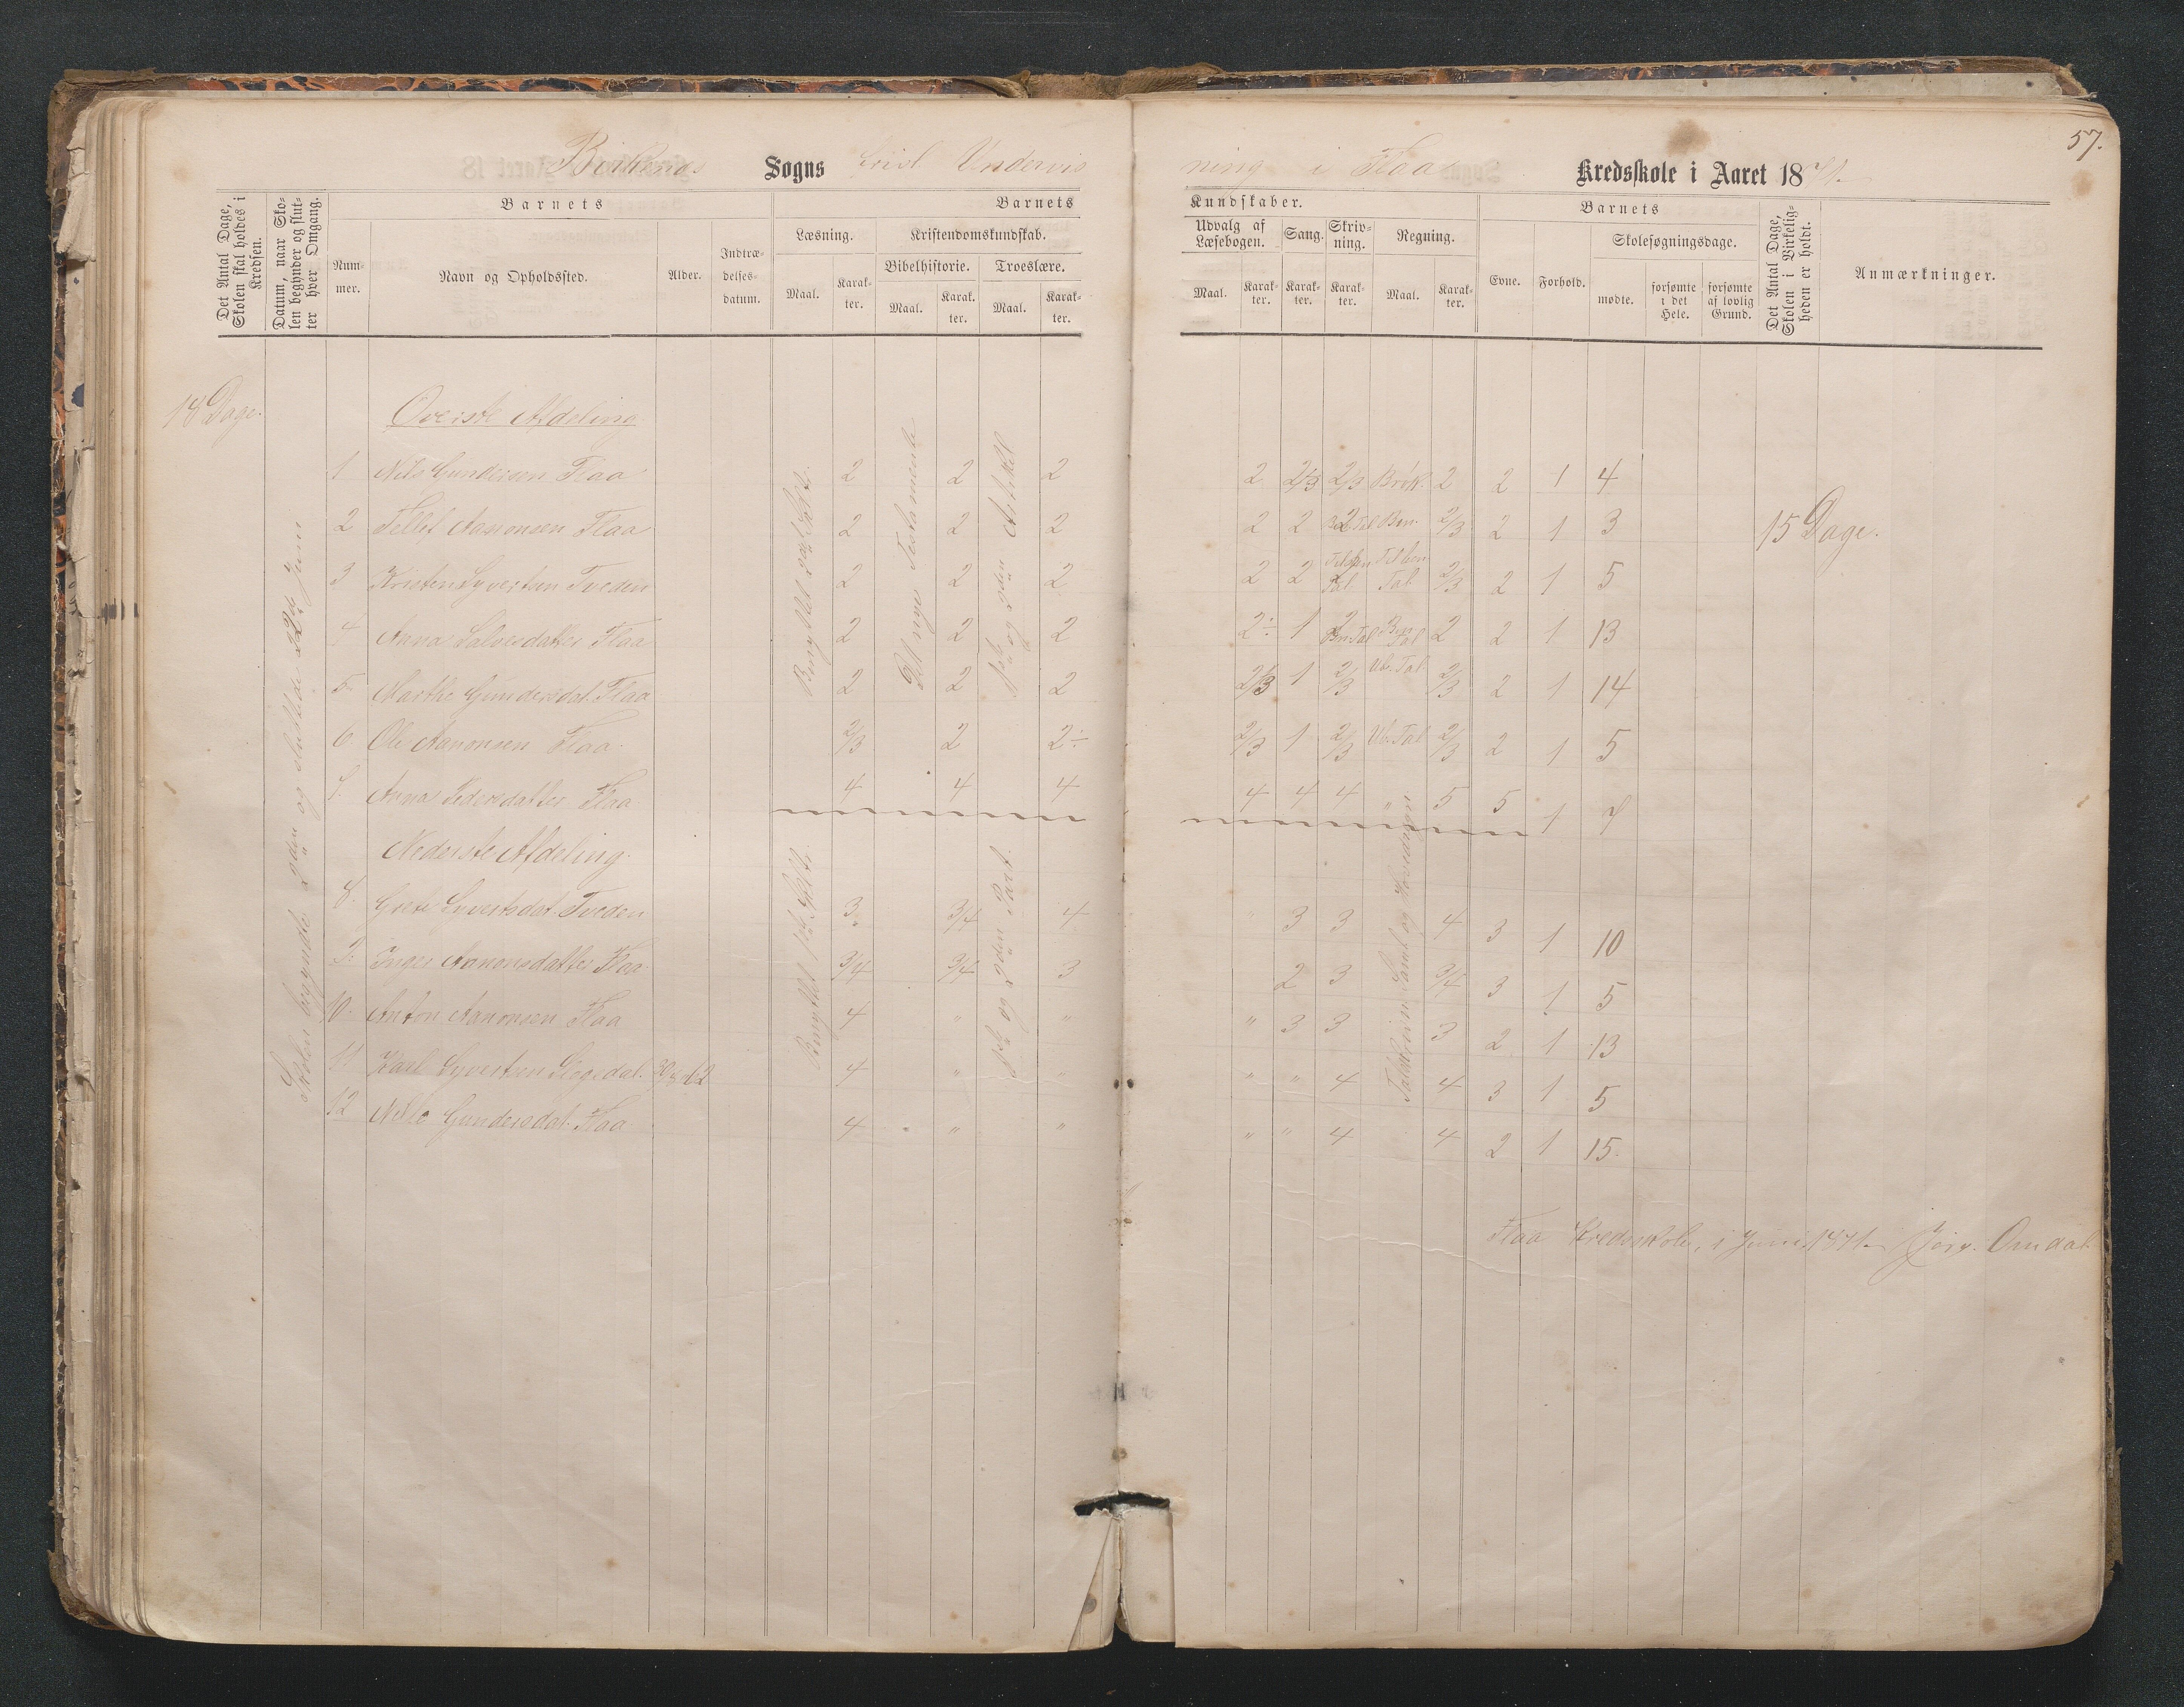 57.
Birkenæs Sogns frivl Undervisning i Flaa Kredsskole i Aaret 1871.
Det Antal Dage, Skolen skal holdes i Kredsen.
Datum, naar Skolen begynder og slutter hver Omgang.
Barnets
Nummer.
Navn og Opholdssted.
Alder.
Indtrædelsesdatum.
Barnets Kundskaber.
Læsning.
Maal.
Karakter.
Kristendomskundskab.
Bibelhistorie.
Maal.
Karakter.
Troeslære.
Maal.
Karakter.
Udvalg af Læsebogen.
Maal.
Karakter.
Sang.
Karakter.
Skrivning.
Karakter.
Regning.
Maal.
Karakter.
Barnets
Evne.
Forhold.
Skolesøgningsdage.
mødte.
forsømte i det Hele.
forsømte af lovlig Grund.
Det Antal Dage, Skolen i Virkeligheden er holdt.
Anmærkninger.
18 Dage.
Skolen begyndte 2den og sluttede 22de Juni
Øverste Afdeling
1 Nils Gundersen Flaa 2 2 2 2 2/3 2/3 Brök. 2 2 1 4
2 Tellef Aanonsen Flaa 2 2 2 2 2 2 Ben. 2/3 2 1 3
15 Dage.
3 Kristen Syvertsen Tveden 2 2 2 2 2 Tal 2/3 2 1 5
4 Anna Salvesdatter Flaa 2 2 2 2÷ 1 2 Ben Tal 2 2 1 13
5 Marthe Gundersdat. Flaa 2 2 2 2/3 1 2/3 Ub. Tal 2/3 2 1 14
6. Ole Aanonsen Flaa. 2/3 2 2÷ 2/3 1 2/3 Ub. Tal 2/3 2 1 5
7. Anna Pedersdatter Flaa 4 4 4 4 4 4 " 5 5 1 7
Nederste Afdeling.
8. Grete Syvertsdat. Tveden 3 3/4 4 " 3 3 4 3 1 10
9. Inger Aanonsdatter Flaa. 3/4 3/4 3 2 3 3/4 3 1 5
10. Anton Aanonsen Flaa 4 " " " 3 3 3 2 1 13
11 Karl Syvertsen 4 " " " " 4 4 3 1 5
12 Gundersdat. Flaa 4 " " " " 4 4 2 1 15.
Testamente
1ste og 2den Artikel
1ste og 2den Part.
Flaa Kredsskole, i Juni 1871. Omdal